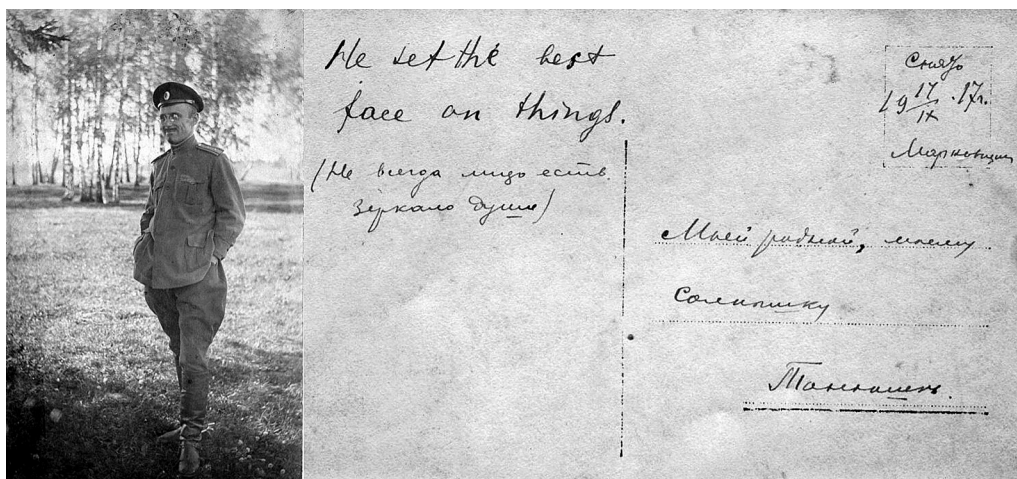 He set the best
face on things.
(Не всегда лицо есть
зеркало души)
Снято
19 17/IX .17г.
Моей родной, моему
солнышку
Танюшеньке.